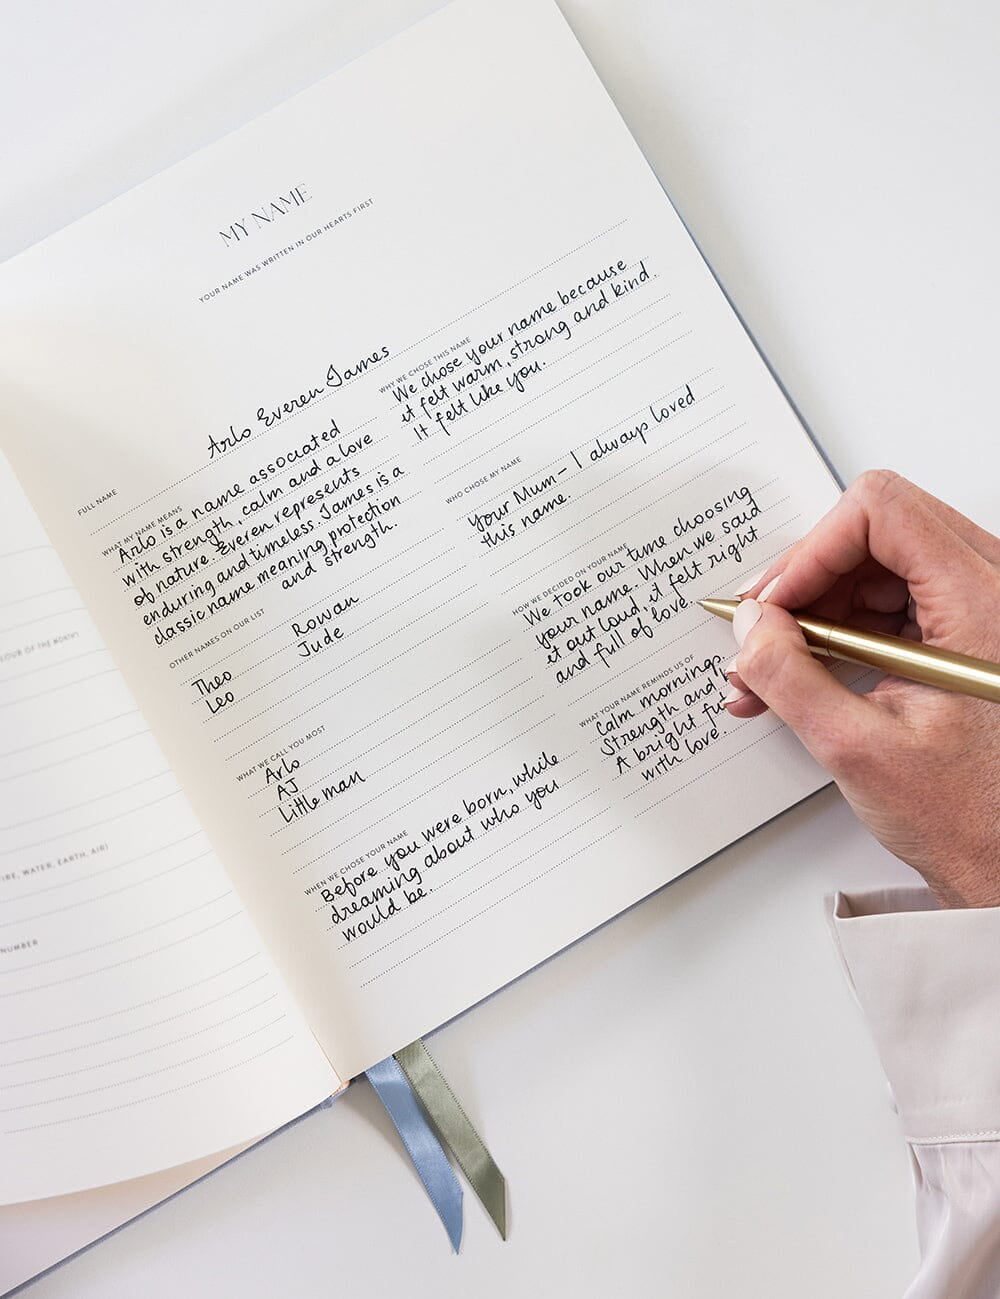 MY NAME
YOUR NAME WAS WRITTEN IN OUR HEARTS FIRST
FULL NAME
Arlo Everen James
WHAT MY NAME MEANS
Arlo is a name associated
with strength, calm and a love
of nature. Everen represents
enduring and timeless. James is a
classic name meaning protection
and strength.
OTHER NAMES ON OUR LIST
Theo
Leo
Rowan
Jude
WHAT WE CALL YOU MOST
Arlo
AJ
Little man
WHEN WE CHOSE YOUR NAME
Before you were born, while
dreaming about who you
would be.
WHY WE CHOSE THIS NAME
We chose your name because
it felt warm, strong and kind.
It felt like you.
WHO CHOSE MY NAME
Your Mum – I always loved
this name.
HOW WE DECIDED ON YOUR NAME
We took our time choosing
your name. When we said
it out loud, it felt right
and full of love.
WHAT YOUR NAME REMINDS US OF
Calm mornings
Strength and
A bright
with love.
OUR OF THE MONTH)
WATER, EARTH, AIR)
NUMBER